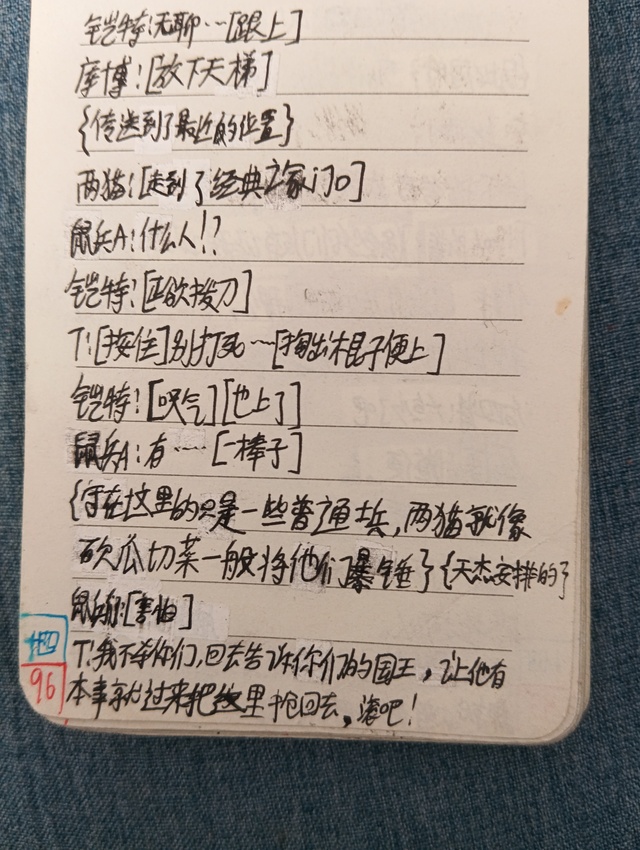 铠特:无聊…[跟上]
库博:[放下天梯]
{传送到了最近的位置}
两猫:[走到了经典之家门口]
鼠兵A:什么人!?
铠特:[正欲拨刀]
T:[按住]别打死…[掏出棍子便上]
铠特:[叹气][也上了]
鼠兵A:有……[一棒子]
{守在这里的只是一些普通士兵,两猫就像
砍瓜切菜一般将他们暴锤了{天杰安排的}
鼠兵们:[害怕]
T:我不杀你们,回去告诉你们的国王,让他有
本事就过来把这里抢回去,滚吧!
96